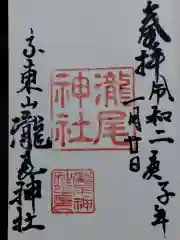 奉拝 令和二庚子年
一月廿日
瀧尾
神社
京東山 瀧尾神社